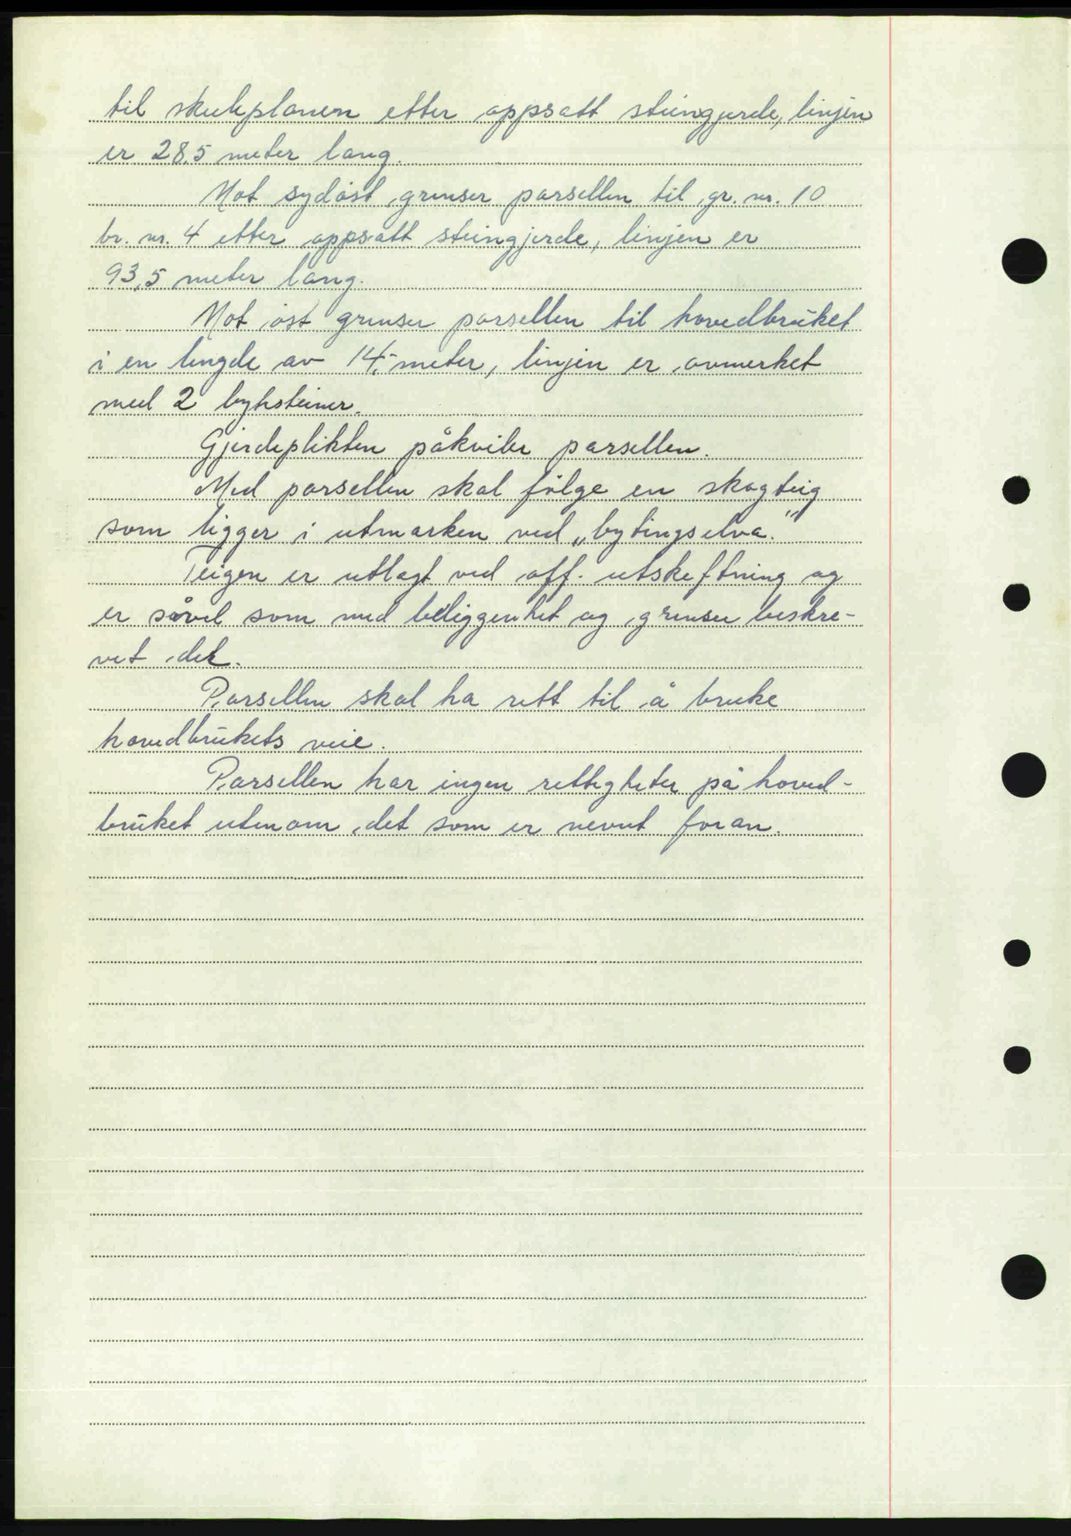 til skuleplanen etter oppsatt steingjerde, linjen
er 28,5 meter lang.
Mot sydøst grenser parsellen til gr. nr. 10
br. nr. 4 etter oppsatt steingjerde, linjen er
93,5 meter lang.
Mot øst grenser parsellen til hovedbruket
i en lengde av 14,- meter, linjen er avmerket
med 2 bytesteiner.
Gjerdeplikten påkviler parsellen.
Med parsellen skal følge en skogteig
som ligger i utmarken ved „bytingselva."
Teigen er utlagt ved off. utskiftning og
er såvel som med beliggenhet og grenser beskre-
vet der.
Parsellen skal ha rett til å bruke
hovedbrukets veie.
Parsellen har ingen rettigheter på hoved-
bruket utenom det som er nevnt foran.